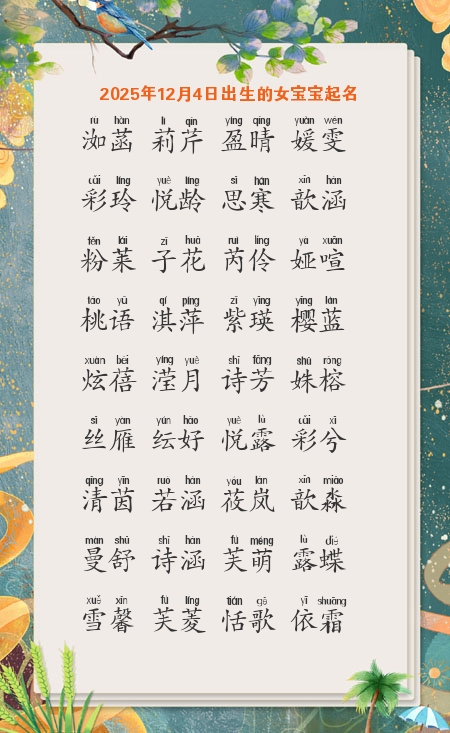 2025年12月4日出生的女宝宝起名
rù hàn lì qín yíng qíng yuàn wén
洳菡 莉芹 盈晴 媛雯
cǎi líng yuè líng sī hán xīn hán
彩玲 悦龄 思寒 歆涵
fěn lái zǐ huā ruì líng yà xuān
粉莱 子花 芮伶 娅喧
táo yǔ qí píng zǐ yīng yīng lán
桃语 淇萍 紫瑛 樱蓝
xuàn bèi yíng yuè shī fāng shū róng
炫蓓 滢月 诗芳 姝榕
sī yàn yún hǎo yuè lù cǎi xī
丝雁 纭好 悦露 彩兮
qīng yīn ruò hán yóu lán xīn miǎo
清茵 若涵 莜岚 歆淼
màn shū shī hán fú méng lù dié
曼舒 诗涵 芙萌 露蝶
xuě xīn fú líng tián gē yī shuāng
雪馨 芙菱 恬歌 依霜